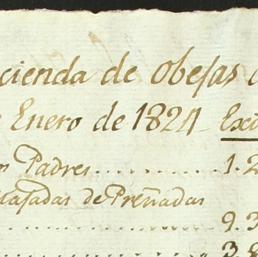 cienda de obejas
Enero de 1824
Padres.......... 1.2
majadas de Preñadas
............ 9.3
............ 3.8